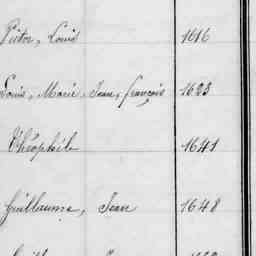 Victor, Louis 1616
Louis, Marie, Jean, françois 1623
Théophile 1641
Guillaume, Jean 1648